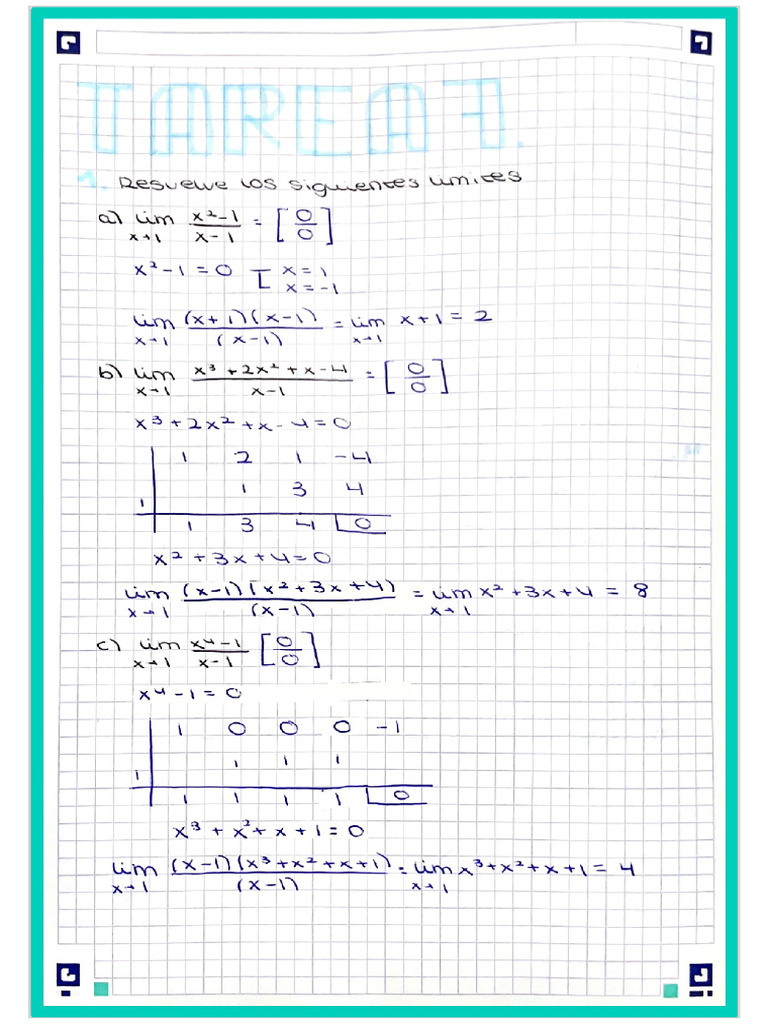 TAREA 7.
1. Resuelve los siguientes limites
a) lim x→1 (x²-1)/(x-1) = [0/0]
x²-1=0 [ x=1 x=-1
lim x→1 (x+1)(x-1)/(x-1) = lim x→1 x+1 = 2
b) lim x→1 (x³+2x²+x-4)/(x-1) = [0/0]
x³+2x²+x-4=0
1 2 1 -4
1 1 3 4
1 3 4 0
x²+3x+4=0
lim x→1 (x-1)(x²+3x+4)/(x-1) = lim x→1 x²+3x+4 = 8
c) lim x→1 (x⁴-1)/(x-1) [0/0]
x⁴-1=0
1 0 0 0 -1
1 1 1 1
1 1 1 1 0
x³+x²+x+1=0
lim x→1 (x-1)(x³+x²+x+1)/(x-1) = lim x→1 x³+x²+x+1 = 4